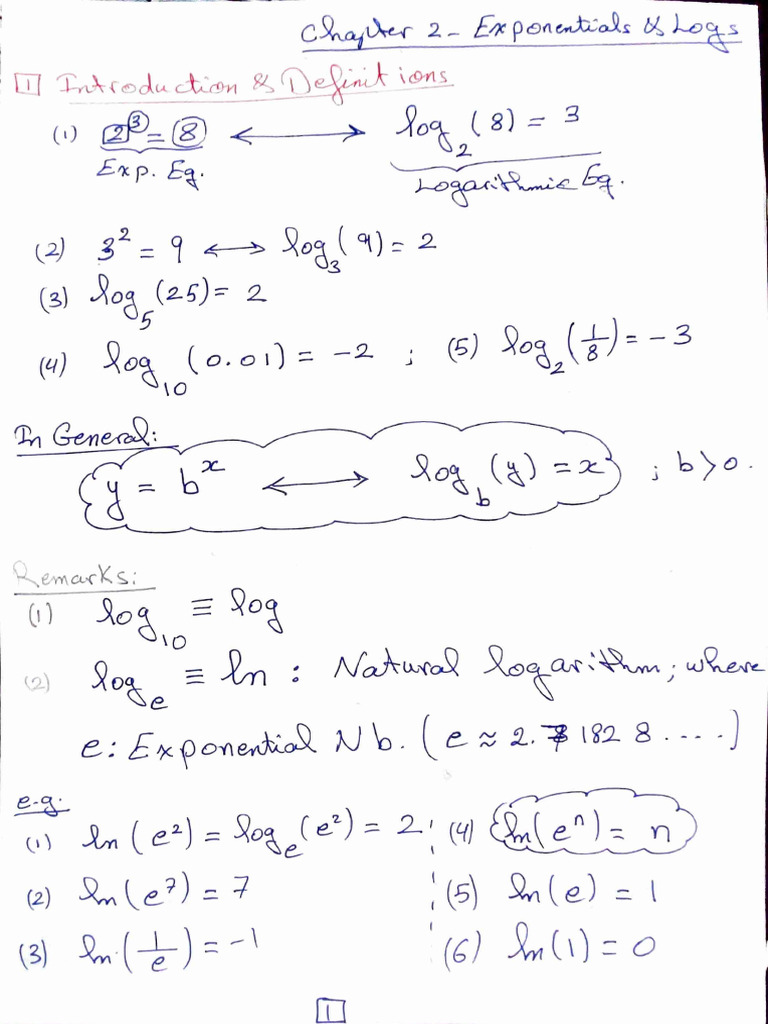 Chapter 2 - Exponentials & Logs
1 Introduction & Definitions
(1) 2³ = 8 ⟷ log₂(8) = 3
Exp. Eq. Logarithmic Eq.
(2) 3² = 9 ⟷ log₃(9) = 2
(3) log₅(25) = 2
(4) log₁₀(0.01) = -2 ; (5) log₂(1/8) = -3
In General:
y = bˣ ⟷ log_b(y) = x ; b > 0.
Remarks:
(1) log₁₀ ≡ log
(2) logₑ ≡ ln : Natural logarithm; where
e: Exponential Nb. (e ≈ 2.7 182 8 ....)
e.g.
(1) ln(e²) = logₑ(e²) = 2 (4) ln(eⁿ) = n
(2) ln(e⁷) = 7 (5) ln(e) = 1
(3) ln(1/e) = -1 (6) ln(1) = 0
1